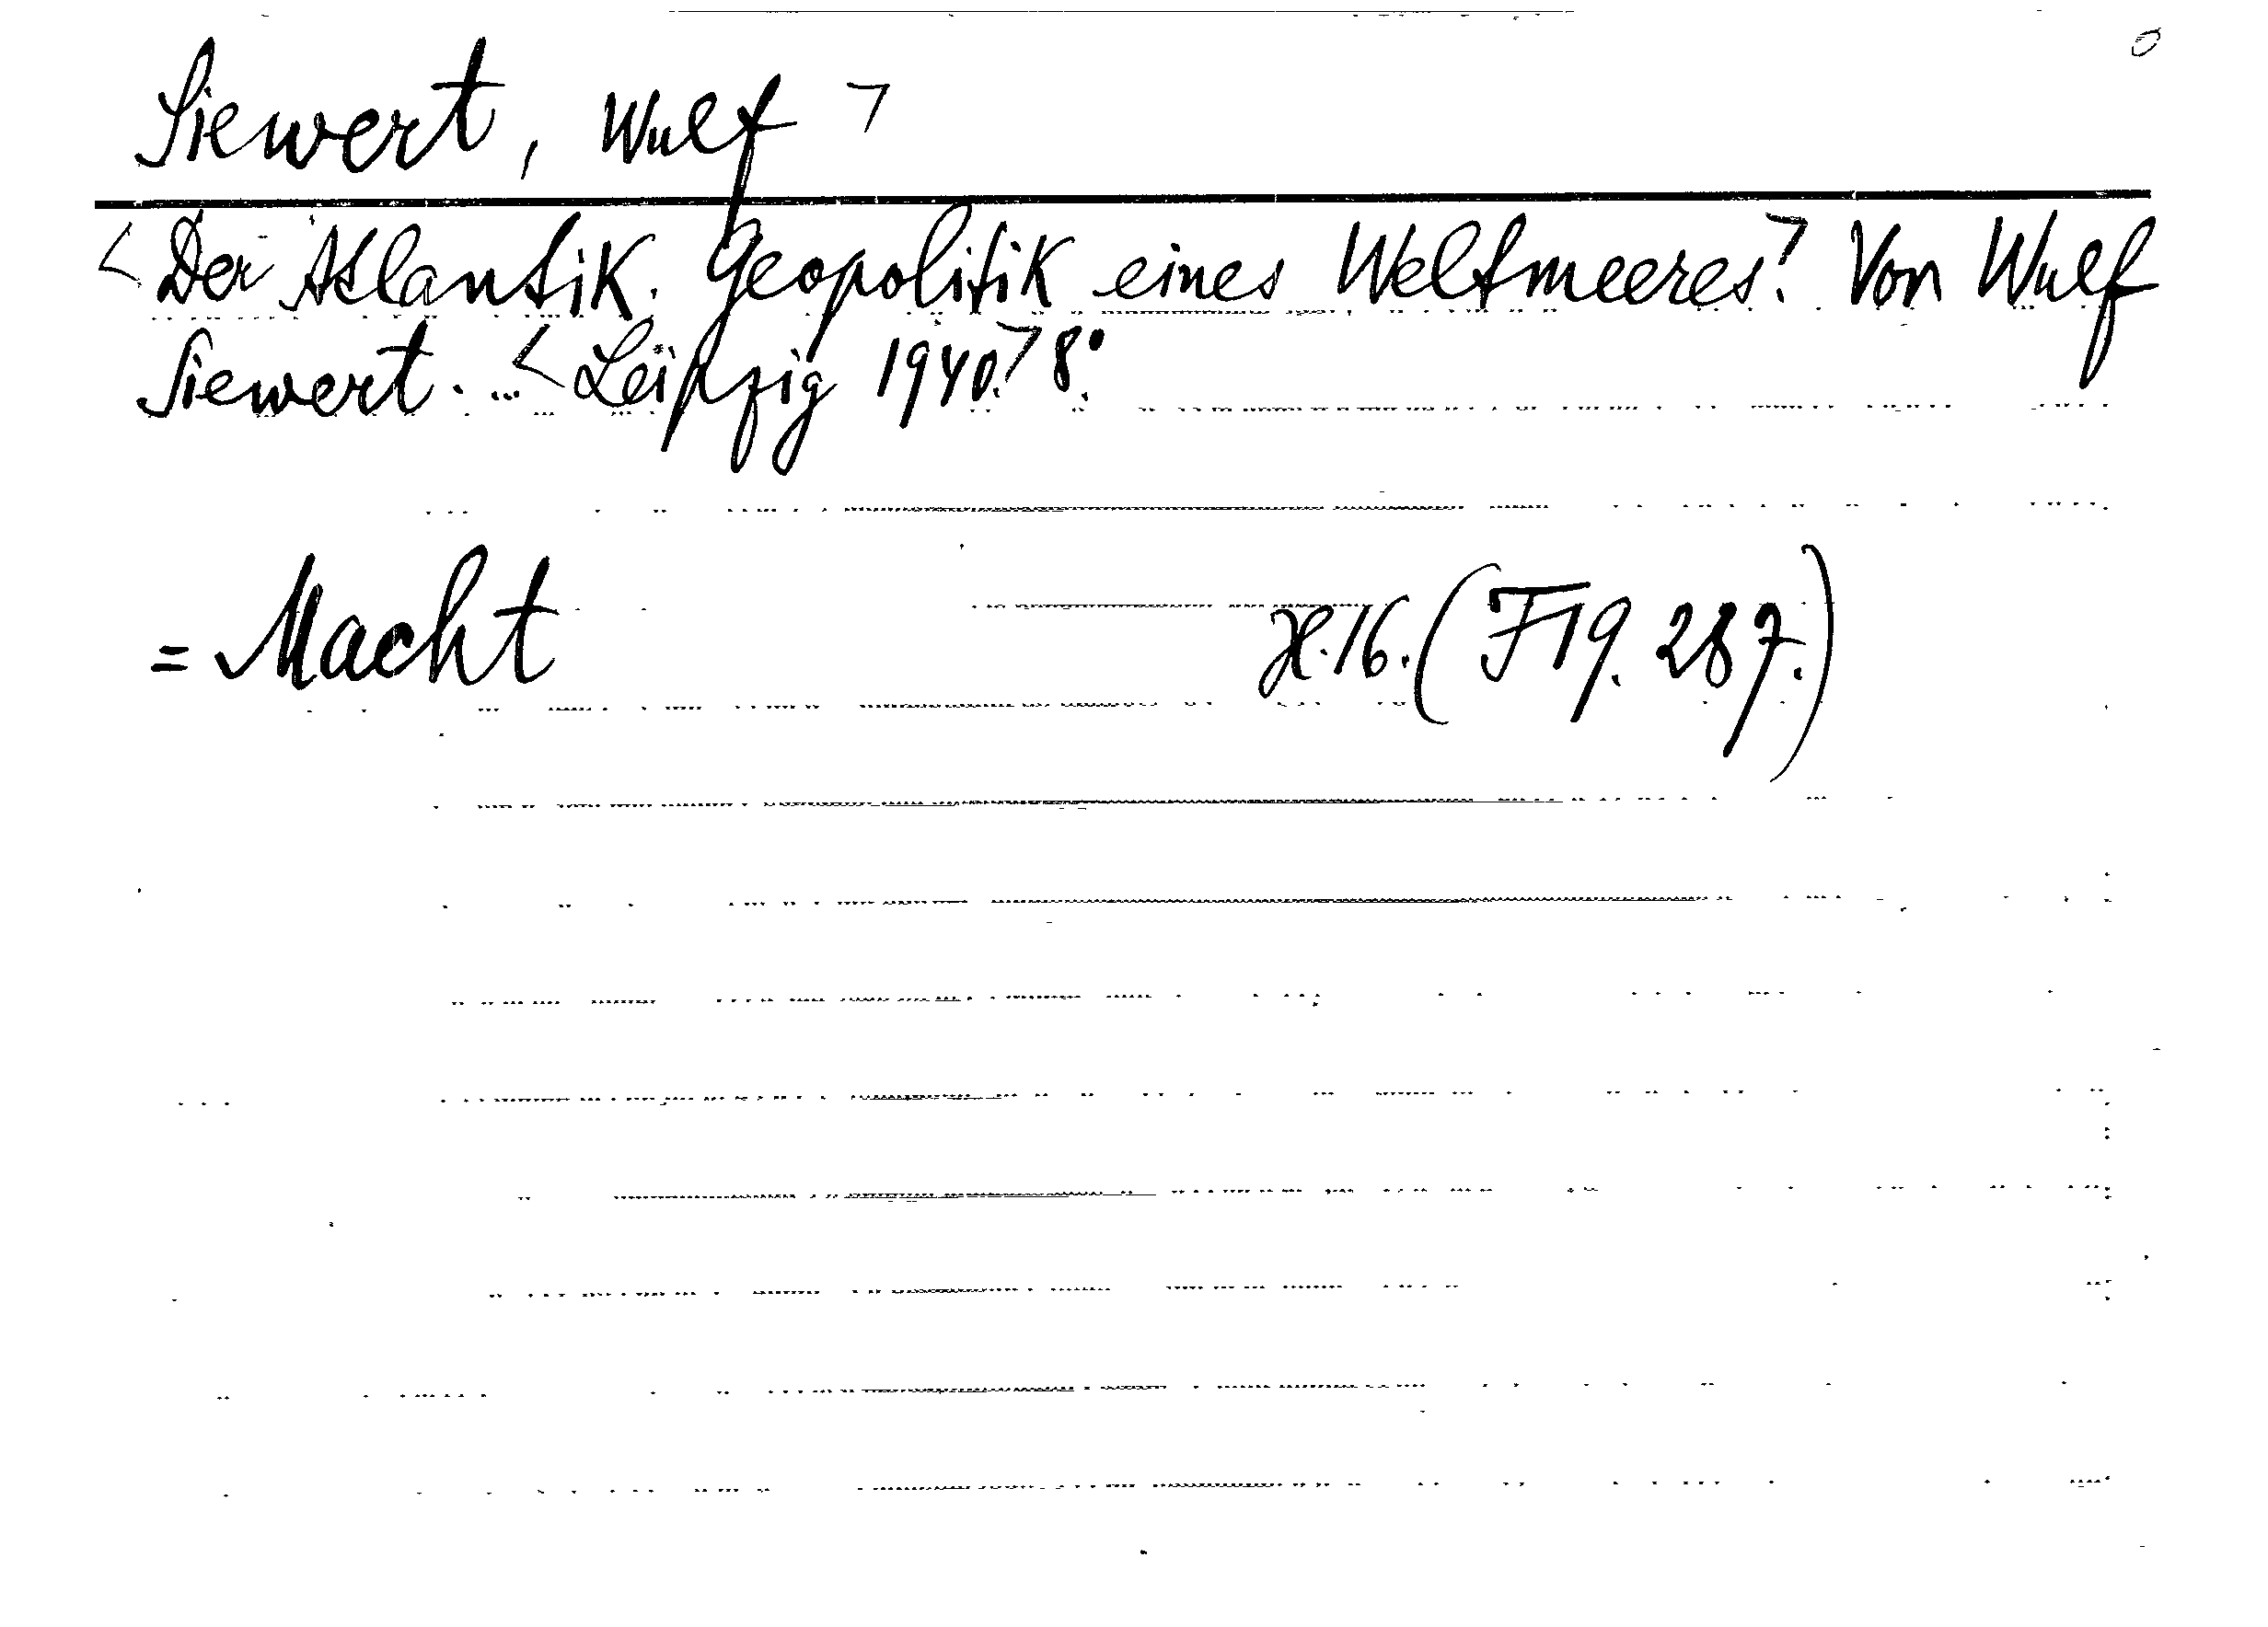 Siewert, Wulf >
<Der Atlantik. Geopolitik eines Weltmeeres.> Von Wulf
Siewert. ... <Leipzig 1940.> 8°.
= Macht H. 16. (F 19. 287.)